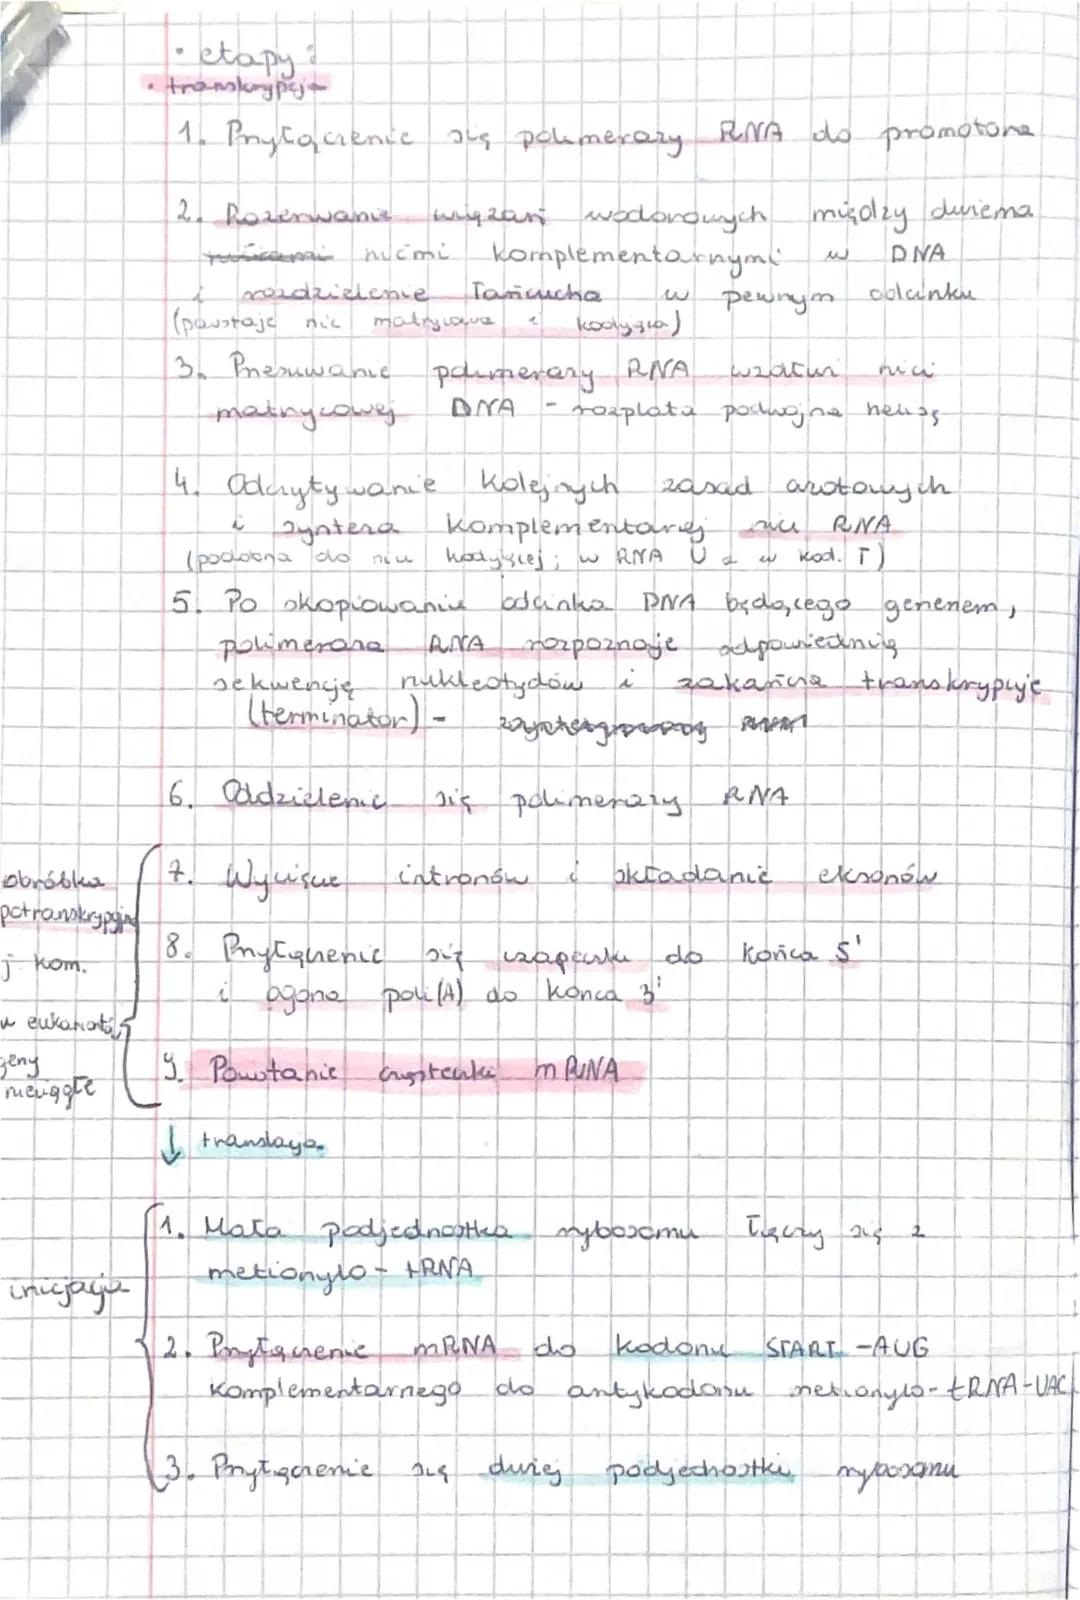 • etapy:
• transkrypcja
1. Przyłączenie się polimerazy RNA do promotora
2. Rozerwanie wiązań wodorowych między dwiema
nićmi komplementarnymi w DNA
i rozdzielenie łańcucha w pewnym odcinku
(powstaje nić matrycowa i kodująca)
3. Przesuwanie polimerazy RNA wzdłuż nici
matrycowej DNA - rozplata podwójną helisę
4. Odczytywanie kolejnych zasad azotowych
i synteza komplementarnej nici RNA
(podobna do nici kodującej; w RNA U a w kod. T)
5. Po skopiowaniu odcinka DNA będącego genenem,
polimeraza RNA rozpoznaje odpowiednią
sekwencję nukleotydów i zakańcza transkrypcję
(terminator) -
6. Oddzielenie się polimerazy RNA
obróbka
potranskrypcyjna
j kom.
u eukariotów
geny
nieciągłe
7. Wycięcie intronów i składanie eksonów
8. Przyłączenie się czapeczki do końca 5'
i ogona poli(A) do końca 3'
9. Powstanie cząsteczki mRNA
↓ translacja
inicjacja
1. Mała podjednostka rybosomu łączy się z
metionylo-tRNA
2. Przyłączenie mRNA do kodonu START -AUG
komplementarnego do antykodonu metionylo-tRNA-UAC
3. Przyłączenie się dużej podjednostki rybosomu